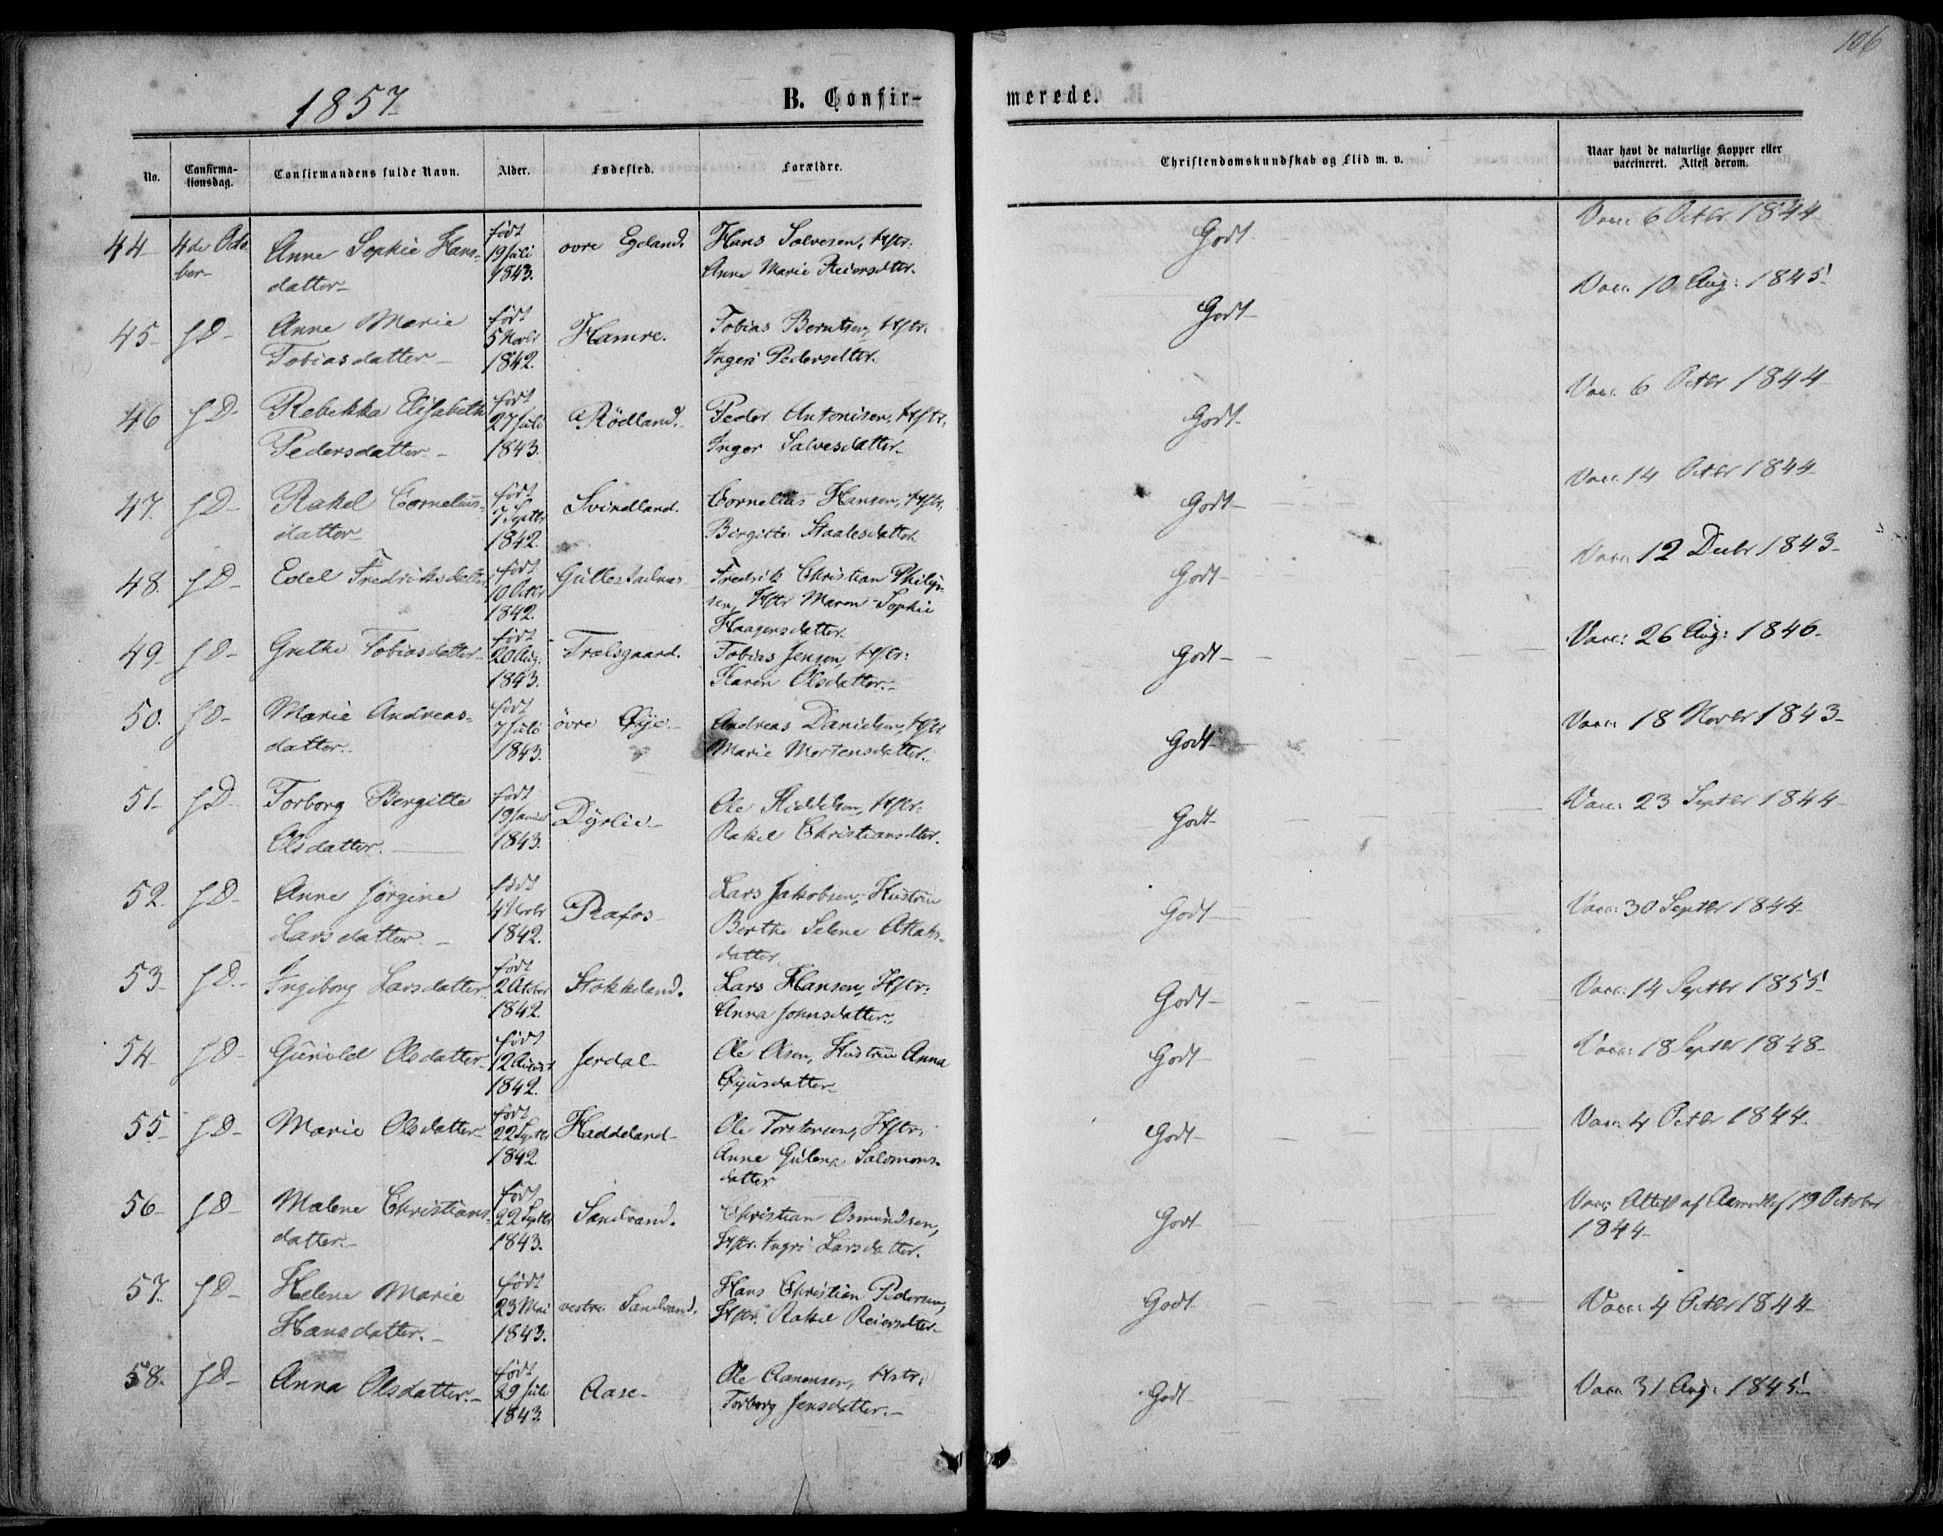 106
1857
B. Confir-
merede.
No.
Confirma-
tionsdag.
Confirmandens fulde Navn.
Alder.
Fødested.
Forældre.
Christendomskundskab og Flid m. v.
Naar havt de naturlige Kopper eller
vaccineret. Attest derom.
44 4de Octo Anne Sophie Hans- født øvre Egeland. Hans Salvesen, Hstr: Godt Vacc: 6 Octbr 1844
ber datter 19 Juli 1843. Anne Marie Reiersdtter.
45 do Anne Marie født Hamre. Tobias Berntsen, Hstr. Godt Vacc: 10 Aug: 1845
Tobiasdatter 5 Novbr 1842. Inger Pedersdtter.
46 do Rebekka Elisabeth født Rödland. Peder Antonisen, Hstr. Godt Vacc: 6 Octbr 1844
Pedersdatter 27 Juli 1843. Inger Salvesdatter
47. do Rakel Cornelius- født Svindland. Cornelius Hansen, Hstr. Godt Vacc: 14 Octbr 1844
datter 7 Septbr 1842. Birgitte Staalesdatter
48. do Edel Fredriksdatter født Fredrik Christian Philip- Godt Vacc: 12 Decbr 1843
10 Octbr 1842. sen, Hstr Maren Sophie
Haagensdatter.
49 do Grethe Tobiasdatter født Trælsgaard. Tobias Jensen, Hstr: Godt Vacc: 26 Aug: 1846
20 Aug. 1843. Karen Olsdatter.
50. do Marie Andreas- født øvre Øye Andreas Danielsen, Hstr Godt Vacc: 18 Novbr 1843
datter. 7 Juli 1843. Marie Mortensdatter.
51 do Torborg Bergitte født Dyrlie Ole Hstr. Godt Vacc: 23 Septbr 1844
Olsdatter. 19 1843. Rakel Christiansdtter.
52 do Anne Jørgine født Rafos Lars Jakobsen, Hustrue Godt Vacc: 30 Septbr 1844
Larsdatter 4 Novbr 1842. Berthe Selene
datter.
53 do Ingeborg Larsdatter født Stokkeland. Lars Hansen, Hstr: Godt Vacc: 14 Septbr 1855
2 October 1842 Anna Johnsdatter.
54 do Gunild Olsdatter født Jerdal Ole Olsen, Hustrue Anna Godt Vacc: 18 Septbr 1848
12 August 1842.
55 do Marie Olsdatter født Haddeland Ole Torstensen, Hstr: Godt Vacc: 4 Octbr 1844
22 Septbr 1842 Anne Gulena Salomons-
datter
56 do Malene Christians- født Sandvand. Christian Osmundsen, Godt Vacc: Attest af 19 October
datter 22 Septbr 1843. Hstr. Ingri Larsdatter. 1844
57. do Helene Marie født vestre Sandvand. Hans Christian Pedersen, Godt Vacc: 4 Octbr 1844
Hansdatter. 23 Mai 1843. Hstr. Rakel Reiersdtter
58. do Anna Olsdatter. født Aase Ole Aanensen, Hstr: Godt Vacc: 31 Aug: 1845
29 Juli 1843 Torborg Jensdatter.